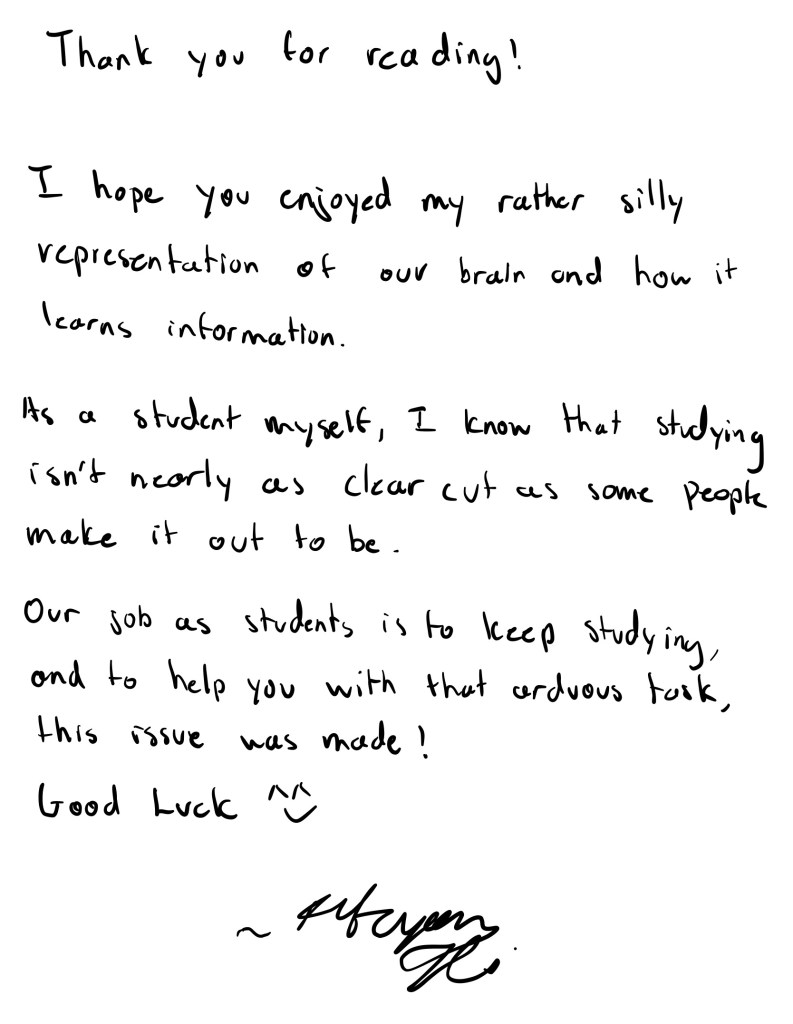 Thank you for reading!
I hope you enjoyed my rather silly
representation of our brain and how it
learns information.
As a student myself, I know that studying
isn't nearly as clear cut as some people
make it out to be.
Our job as students is to keep studying,
and to help you with that arduous task,
this issue was made!
Good Luck ^^
~